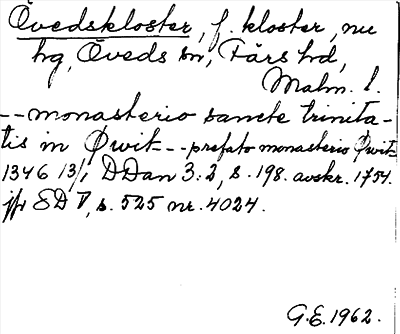 Övedskloster, f. kloster, nu
hg, Öveds sn, Färs hd,
Malm. l.
-- monasterio sancte trinita-
tis in Øwit -- prefato monasterio Øwit
1346 13/1 DDan 3:2, s. 198. avskr. 1754.
jfr SD V, s. 525 nr. 4024.
G.E. 1962.